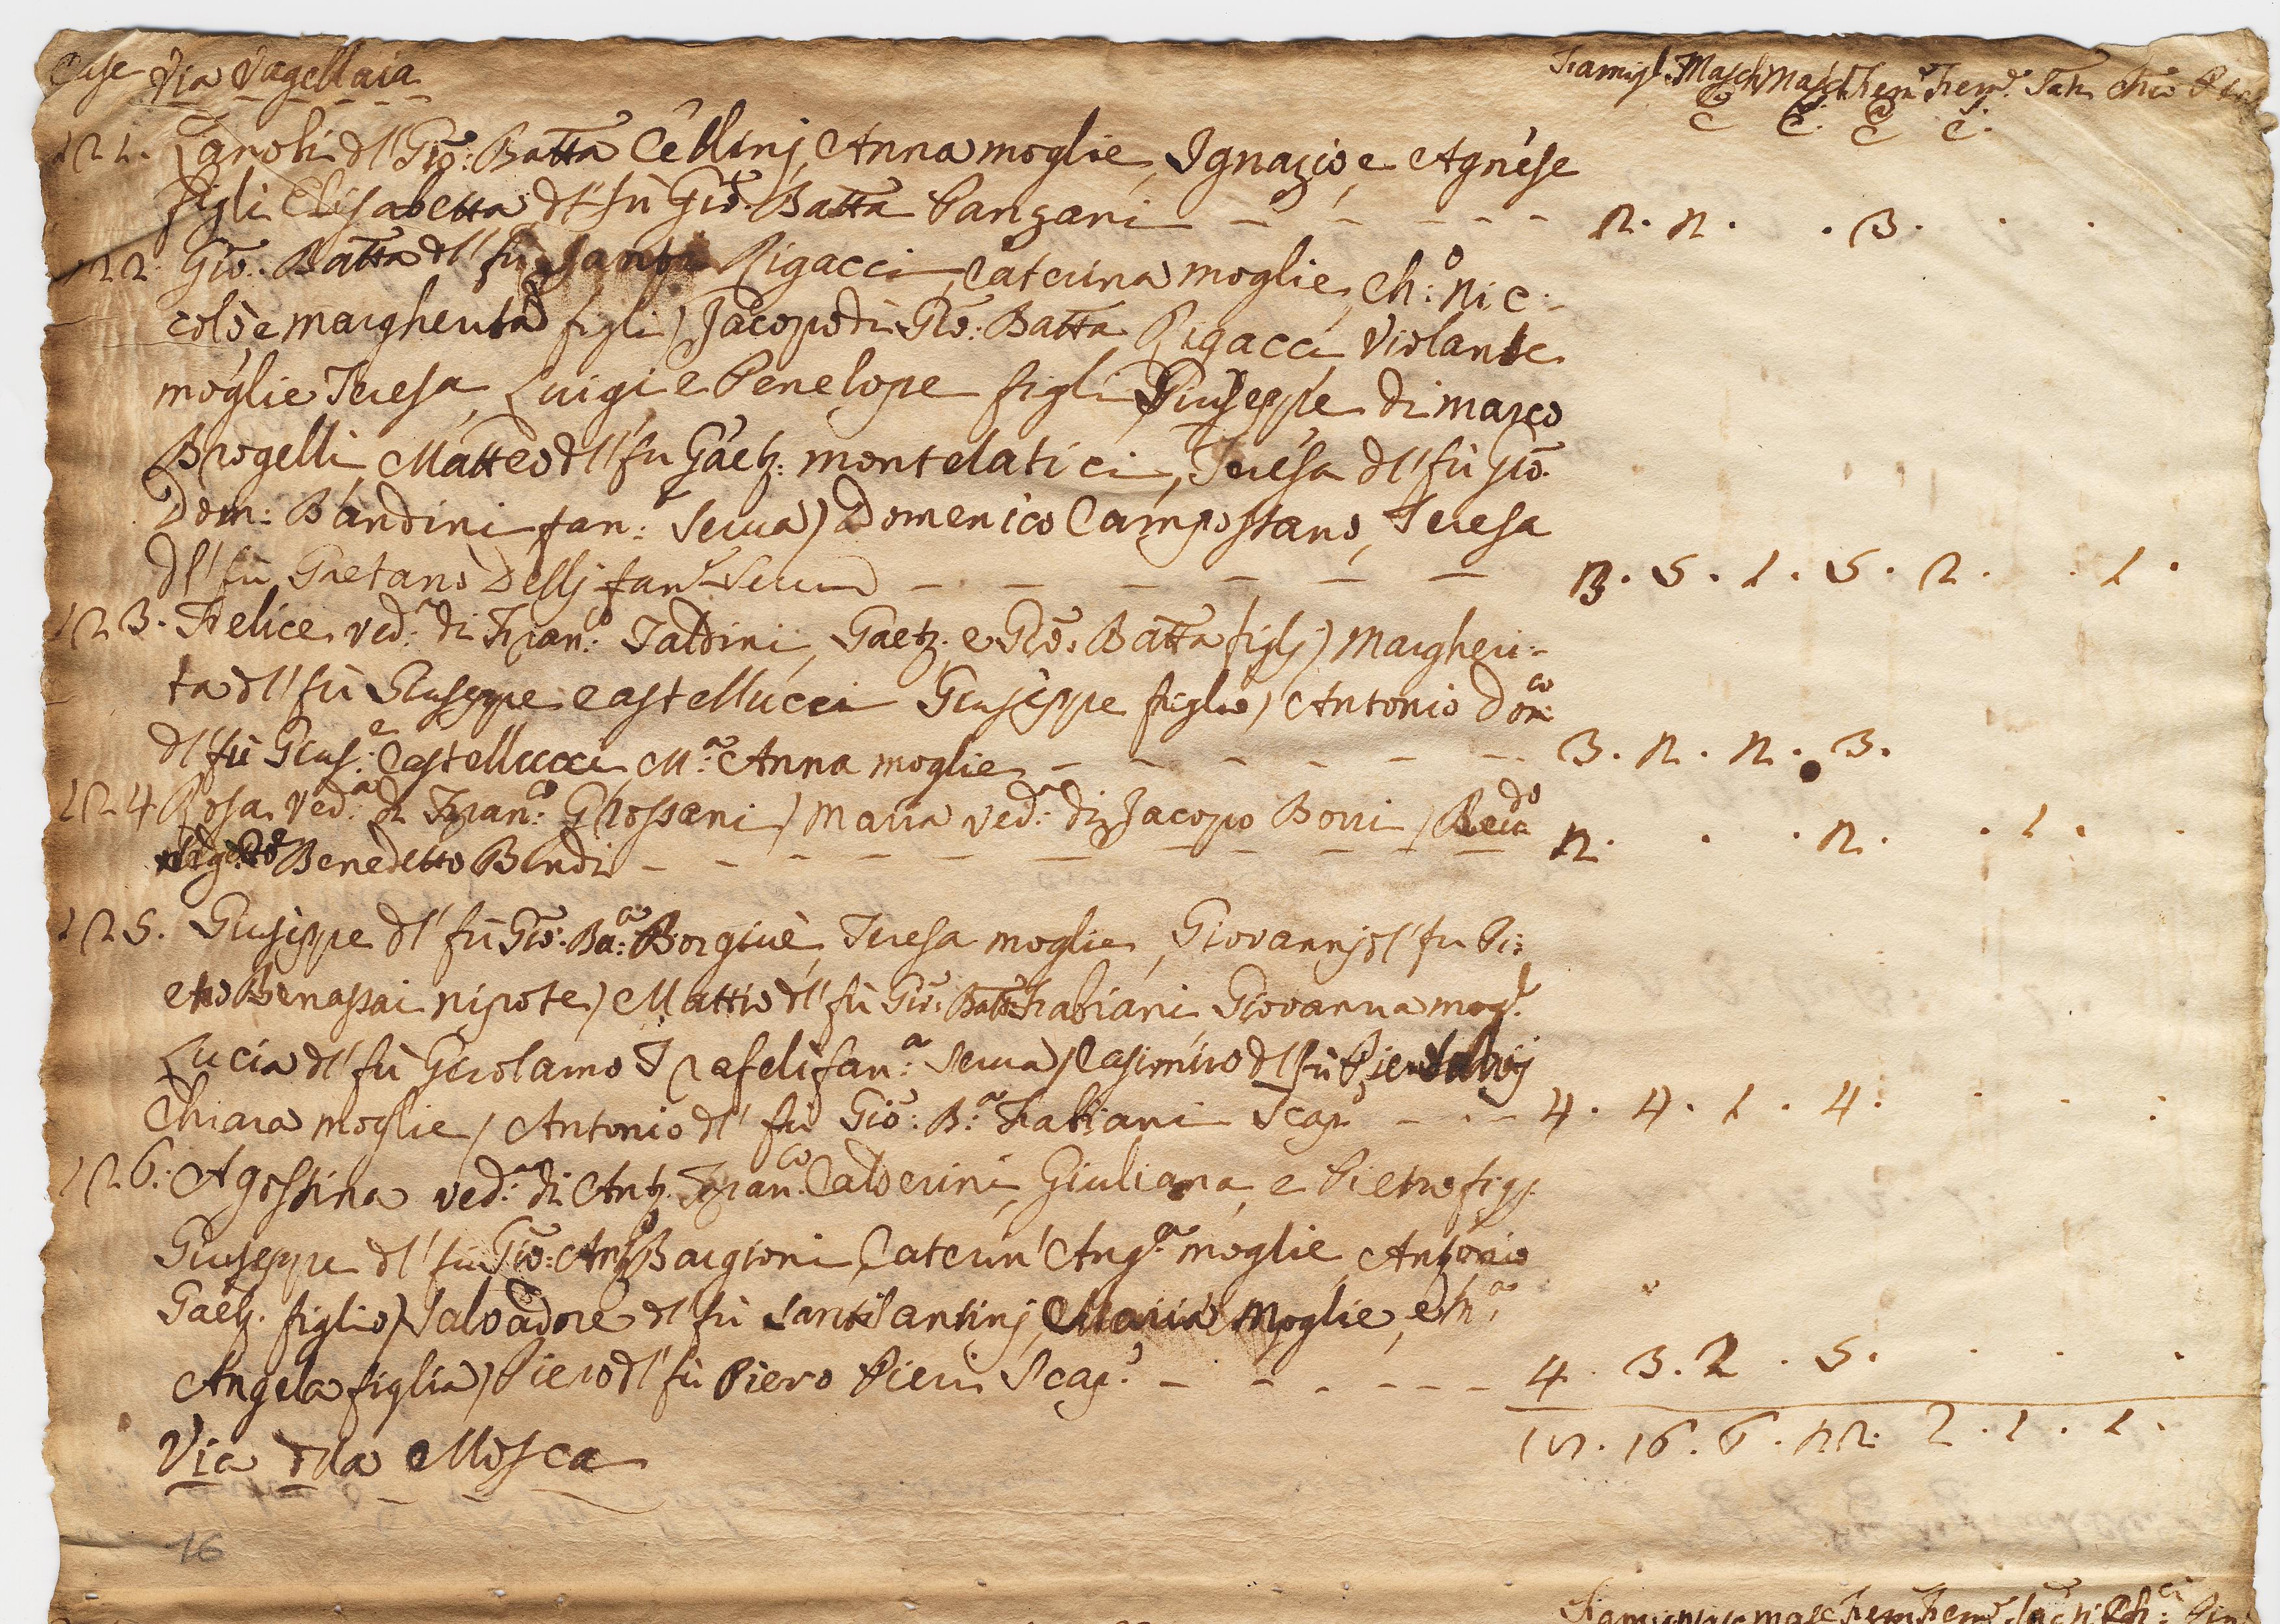 Case Via Vagellaia
Famigl. Masch Masch Fem Fem. Sac. Chi. Pin
C C. C C.
121. Zanobi dl Gio: Batta Cellinj, Anna moglie, Ignazio, e Agnese
figli Elisabetta dl fù Gio: Batta Panzani - - - - - 2. 2. . 3. . . .
122. Gio: Batta dl fù Rigacci, Caterina moglie, Ch: Nic:
colò, e Margherita figli) Jacopo di Gio: Batta Rigacci, Violante
moglie Teresa, Luigi e Penelope figli Giuseppe di Marco
Brogelli, Matteo dl fu Gaet: Montelatici, Teresa dl fù Gio:
Dom: Bandini fan: serva) Domenico Campostano, Teresa
dl fù Gaetano Dellj fan. serva - - - - - - 3. 5. 1. 5. 2. . 1.
123. Felice ved.a di Fran.co Taldini, Gaet. e Gio: Batta figlj) Margheri-
ta dl fù Giuseppe Castellucci Giuseppe figlio) Antonio Dom:co
dl fù Gius:e Castellucci M:a Anna moglie - - - - - - 3. 2. 2. 3.
124 Rosa ved:a di Fran:co Ghossani) Maria ved:a di Jacopo Borri) Rev:do
Benedetto Bendi - - - - - - - - - 2. . . 2. . 1.
125. Giuseppe dl fù Gio: Ba:a Borgiuè, Teresa moglie, Giovannj dl fu Pi:
etro Benassai nipote) Mattio dl fù Gio: Batta Fabiani, Giovanna mogl.
Lucia dl fù Girolamo Trafeli fan:a serva) Casimiro dl fù
Chiara moglie) Antonio dl fù Gio: B:a Fabiani Scap. - - - 4. 4. 1. 4. . . :
126. Agostina ved:a di Ant. Fran:co Calderini, Giuliana, e Pietro figj.
Giuseppe dl fù Gio: Ant. Bargioni, Caterin' Ang.a moglie, Antonio
Gaet. figlio) Salvadore dl fù Santi Santinj, Maria Moglie, e M:a
Angela figlia) Piero dl fù Piero Pieri Scap. - - - - - - 4. 3. 2. 5. . . .
17. 16. 6. 22. 2. 1. 1.
Via dla Mosca
16